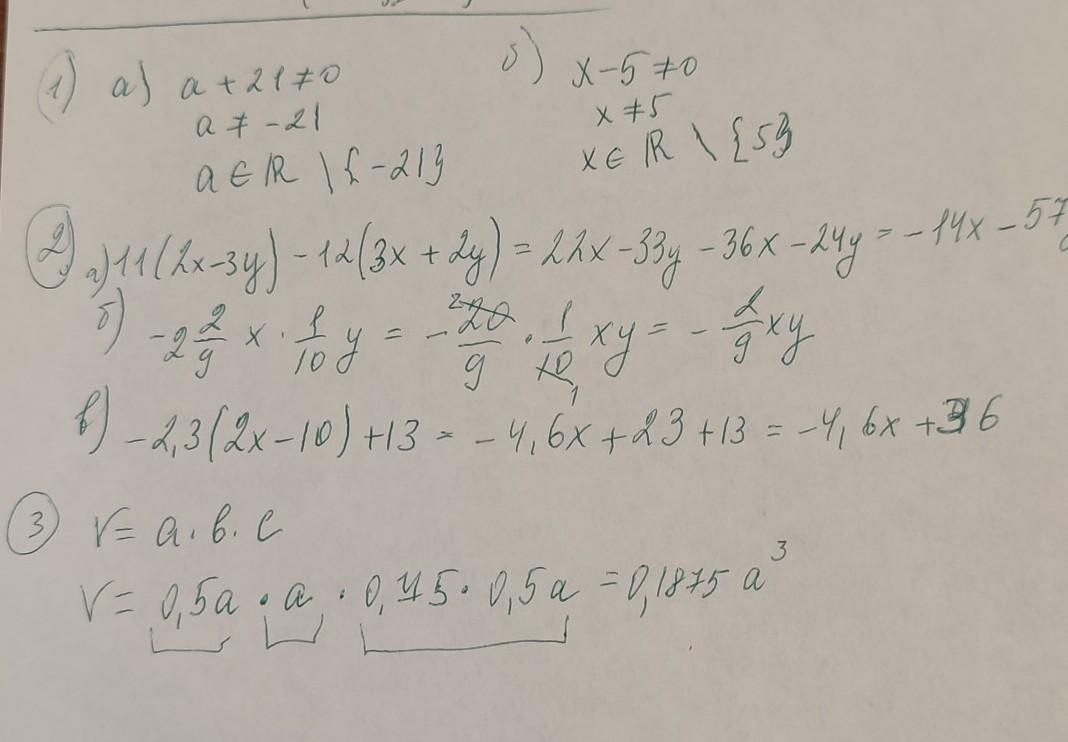 1) а) a + 21 ≠ 0
a ≠ -21
a ∈ ℝ \ {-21}
б) x - 5 ≠ 0
x ≠ 5
x ∈ ℝ \ {5}
2) а) 11(2x-3y) - 12(3x + 2y) = 22x - 33y - 36x - 24y = -14x - 57y
б) -2 2/9 x · 1/10 y = - 20/9 · 1/10 xy = - 2/9 xy
в) -2,3(2x-10) + 13 = -4,6x + 23 + 13 = -4,6x + 36
3 V = a · b · c
V = 0,5a · a · 0,75 · 0,5a = 0,1875 a³